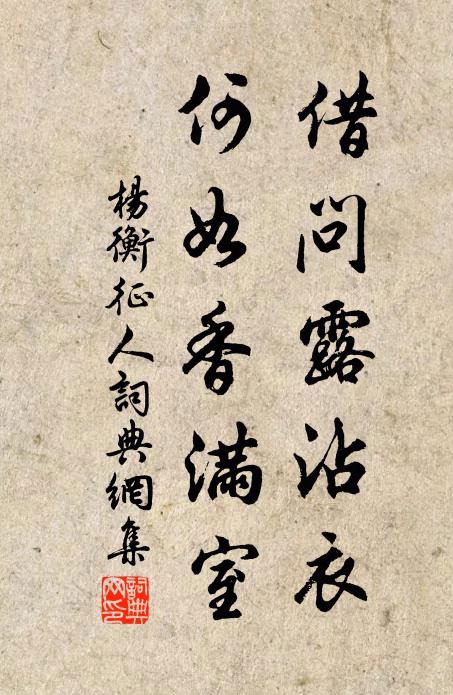 借問露沾衣
何如香滿室
楊衡征人詞典網集
詞典網印